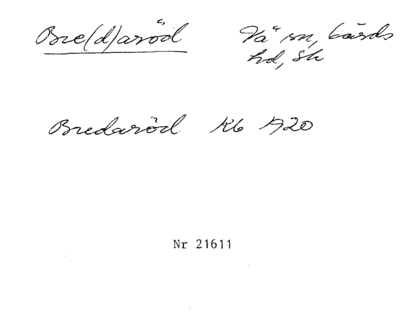 Bre(d)aröd Vä sn, Gärds
hd, Sk
Bredaröd Kb 1920
Nr 21611